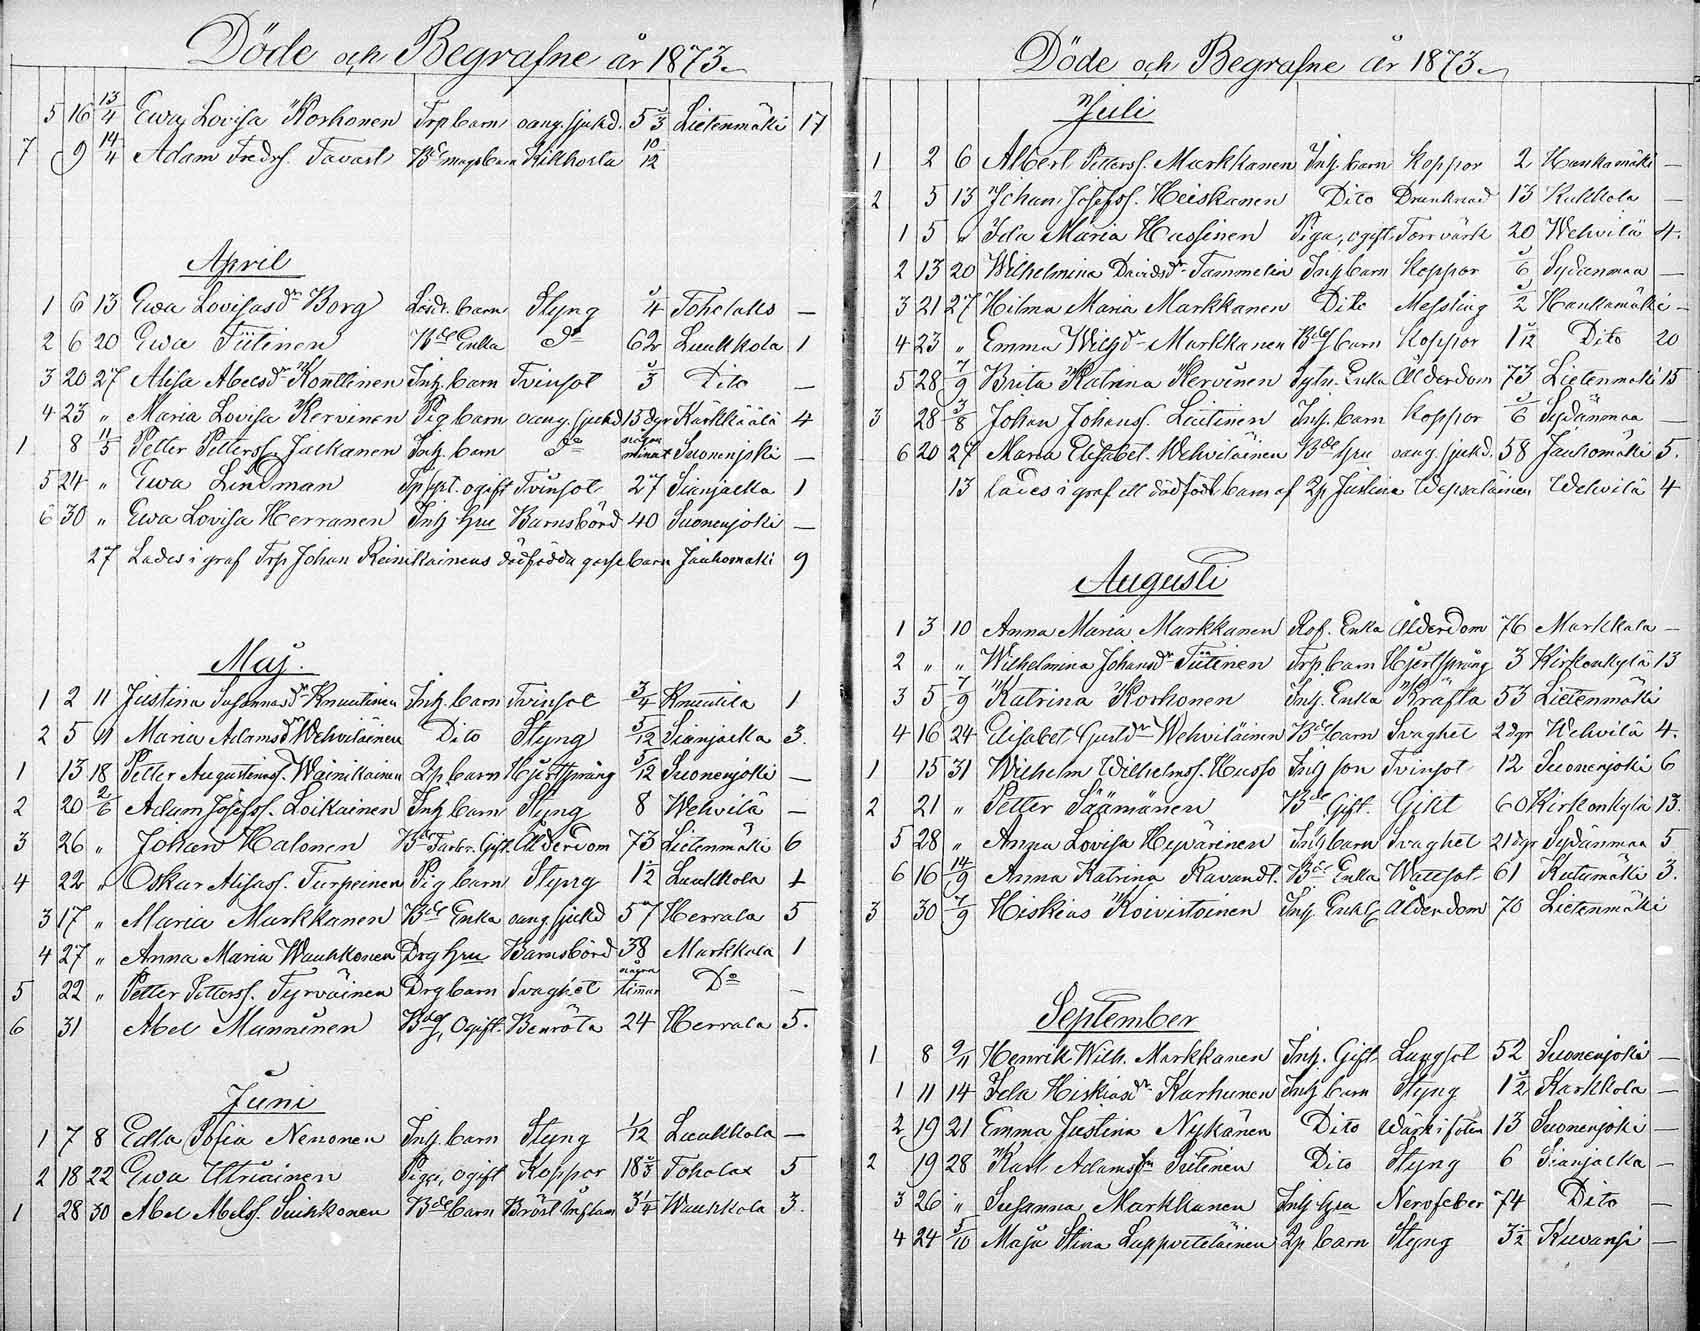 Döde och Begrafne år 1873.
5 16 13/4 Ewa Lovisa Korhonen Trp barn oang. sjukd. 5/3 Lietenmäki 17
7 9 14/4 Adam Fredrs. Tavast Bde mågs barn Kikhosta 10/12
April
1 6 13 Ewa Lovisasdr Borg barn Styng 3/4 Toholaks —
2 6 20 Ewa Tiitinen Bde Enka do 62 Luukkola 1
3 20 27 Alisa Abelsdr Konttinen Inh. barn Tvinsot Dito —
4 23 " Maria Lovisa Kervinen Pig barn oang. sjukd 13 dgr Kärkkäälä 4
1 8 11/5 Petter Petterss. Jalkanen Inh. barn do några minut Suonenjoki —
5 24 " Ewa Lindman ogift Tvinsot 27 Sianjalka 1
6 30 " Ewa Lovisa Herranen Inh hru Barnsbörd 40 Suonenjoki —
27 Lades i graf Trp Johan Reinikainens dödfödda gosse barn Jauhomäki 9
Maj.
1 2 11 Justina Susannasdr Knuutinen Inh. barn Tvinsot 3/4 Knuutila 1
2 5 11 Maria Adamsdr Wehviläinen Dito Styng 5/12 Sianjalka 3.
1 13 18 Petter Augustinss. Wainikainen Lp barn Hjertsprång 5/12 Suonenjoki —
2 20 2/6 Adam Josefss. Loikainen Inh barn Styng 8 Wehvilä —
3 26 " Johan Halonen Bd Farbr. Gift. Ålderdom 73 Lietenmäki 6
4 22 " Oskar Alisass. Turpeinen Pig barn Styng 1/2 Luukkola 1
3 17 " Maria Markkanen Bde Enka oang. sjukd 57 Herrala 5
4 27 " Anna Maria Wauhkonen Drg hru Barnsbörd 38 Markkala 1
5 22 " Petter Petterss. Tyrväinen Drg barn Svaghet några timmar Do —
6 31 Abel Manninen Ogift. Benröta 24 Herrala 5.
Juni
1 7 8 Edla Sofia Nenonen Inh. barn Styng 1/12 Luukkola —
2 18 22 Ewa Utriainen Piga, ogift Koppor 18 Toholax 5
1 28 30 Abel Abelss. Suihkonen Bde barn Bröst Inflam 3 1/4 Wauhkola 3.
Döde och Begrafne år 1873.
Juli
1 2 6 Albert Petterss. Markkanen Inh. barn Koppor 2 Haukamäki —
2 5 13 Johan Josefss. Heiskanen Dito Drunknad 13 Kukkola —
1 5 " Ida Maria Hussinen Piga, ogift Torrvärk 20 Wehvilä 4.
2 13 20 Wilhelmina Davidsdr Tammelin Inh barn Koppor Sydänmaa —
3 21 27 Hilma Maria Markkanen Dito Messling Haukamäki —
4 23 " Emma Wilhdr Markkanen barn Koppor 1 1/12 Dito 20
5 28 7/9 Brita Katrina Kervinen Enka Ålderdom 73 Lietenmäki 15
3 28 3/8 Johan Johanss. Lintinen Inh. barn Koppor Sydänmaa —
6 20 27 Maria Elisabet Wehviläinen Bde hru oang. sjukd. 58 Jauhomäki 5.
13 Lades i graf ett dödfödt barn af Lp Justina Wepsäläinen Wehvilä 4
Augusti
1 3 10 Anna Maria Markkanen Enka Ålderdom 76 Markkala —
2 " " Wilhelmina Johansdr Tiitinen Trp barn Hjertsprång 3 Kirkonkylä 13
3 5 7/9 Katrina Korhonen Inh. Enka Kräfta 53 Lietenmäki
4 16 24 Elisabet Gustdr Wehviläinen Bde barn Svaghet 2 dgr Wehvilä 4.
1 15 31 Wilhelm Wilhelmss. Husso Inh son Tvinsot 12 Suonenjoki 6
2 21 " Petter Säämänen Bde Gift. Gikt 60 Kirkonkylä 13.
5 28 " Anna Lovisa Hyvärinen Inh barn Svaghet 21 dgr Sydänmaa 5
6 16 14/9 Anna Katrina Ravandt. Bde Enka Wattsot 61 Kutumäki 3.
3 30 7/9 Hiskias Koivistoinen Inh. Enkl Ålderdom 70 Lietenmäki
September
1 8 9/11 Henrik Wilh. Markkanen Inh. Gift Lungsot 52 Suonenjoki —
1 11 14 Ida Hiskiasdr Karhunen Inh barn Styng 1 Karkkola —
2 19 21 Emma Justina Nykänen Dito Wärk i foten 13 Suonenjoki —
2 19 28 Karl Adamsson Sutinen Dito Styng 6 Sianjalka —
3 26 " Susanna Markkanen Inh hru Nervfeber 74 Dito —
4 24 5/10 Maja Stina Lappveteläinen Lp barn Styng 3 1/2 Kuvansi —